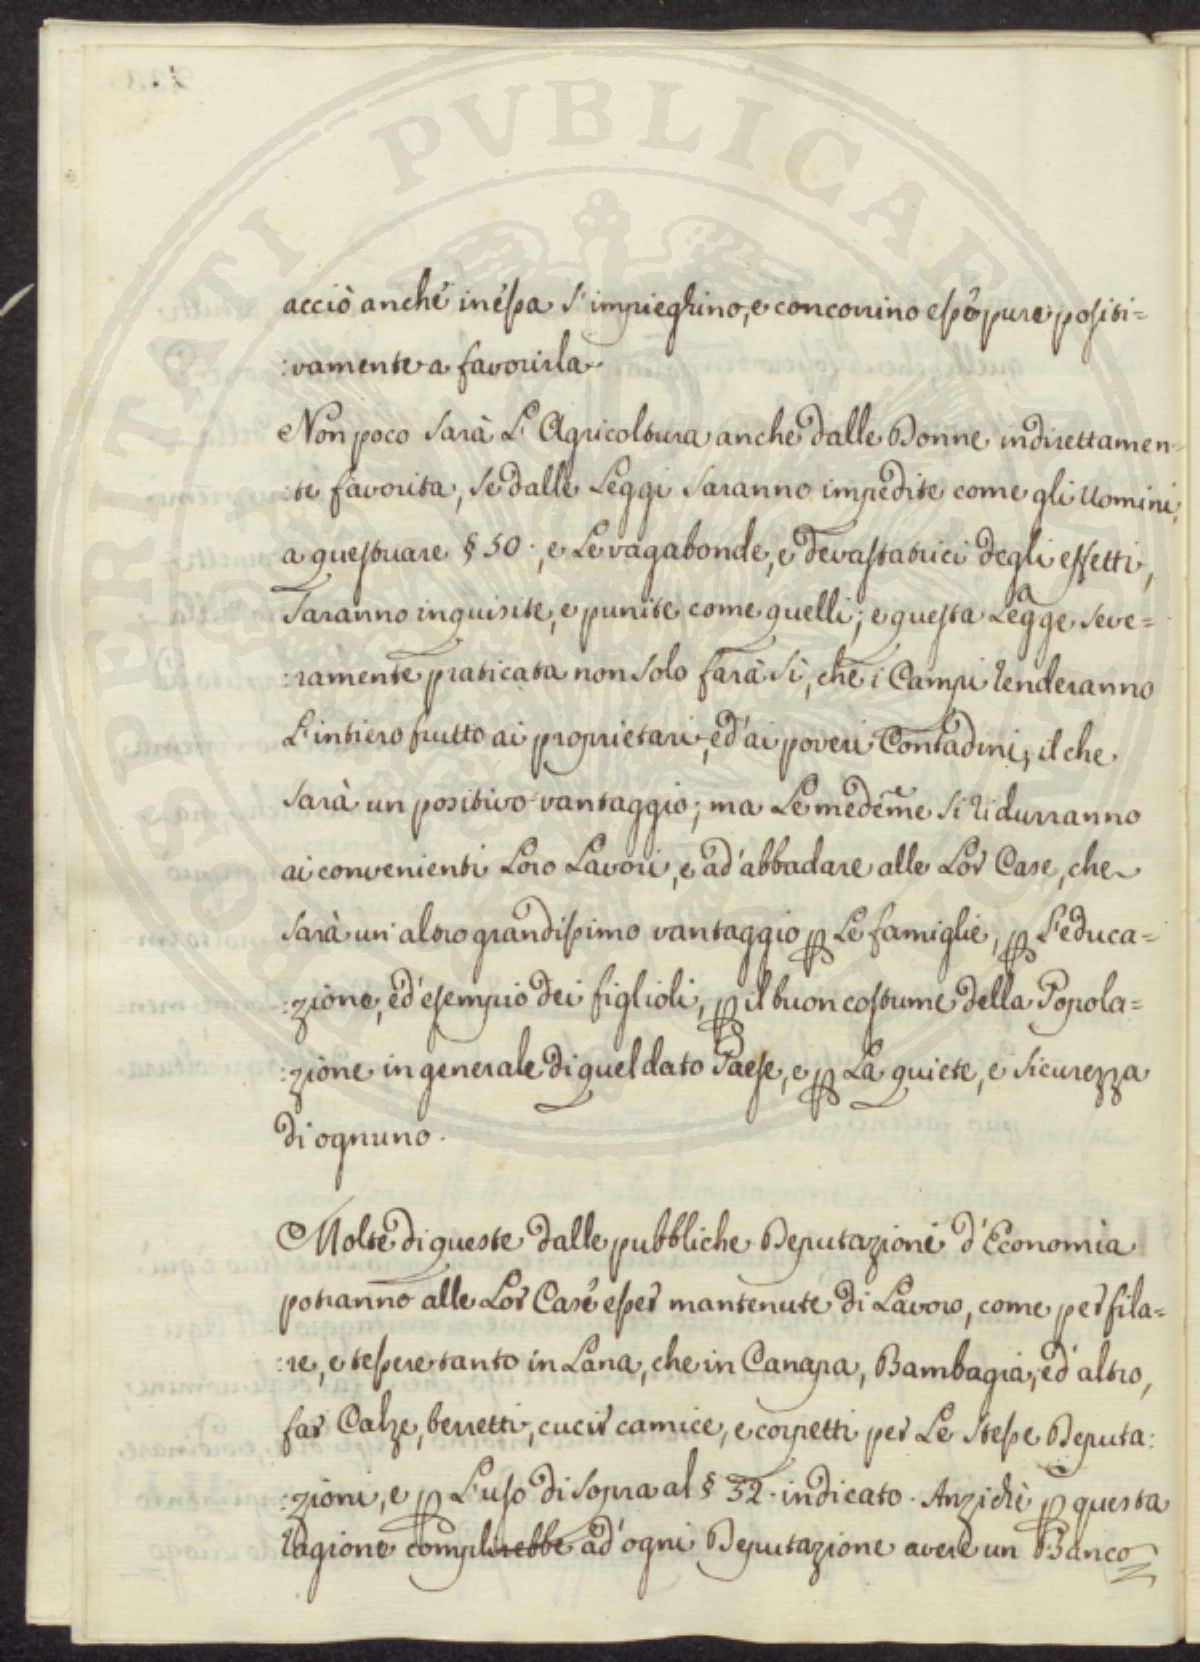 PROSPERITATI PUBLICAE
acciò anche in essa s'impieghino, e concorrino esse pure positi=
:vamente a favorirla.
Non poco sarà L'Agricoltura anche dalle Donne indirettamen=
:te favorita, se dalle Leggi saranno impedite come gli Uomini,
a questuare § 50., e Le vagabonde, e devastatrici degli effetti,
saranno inquisite, e punite come quelli; e questa Legge seve=
:ramente praticata non solo farà sì, che i Campi renderanno
L'intiero frutto ai proprietari, ed'ai poveri Contadini, il che
sarà un positivo vantaggio; ma Le medeme si ridurranno
ai convenienti Loro Lavori, e ad'abbadare alle Lor Case, che
sarà un'altro grandissimo vantaggio p Le famiglie, p L'educa=
:zione, ed'esempio dei figlioli, p il buon costume della Popola=
:zione in generale di quel dato Paese, e p La quiete, e sicurezza
di ognuno.
Molte di queste dalle pubbliche Deputazioni d'Economia
potranno alle Lor Case esser mantenute di Lavoro, come per fila=
:re, e tessere tanto in Lana, che in Canapa, Bambagia, ed'altro,
far Calze, berretti, cucir camice, e corpetti per Le stesse Deputa:
:zioni, e p L'uso di sopra al § 32. indicato. Anzichè p questa
ragione complirebbe ad'ogni Deputazione avere un Banco